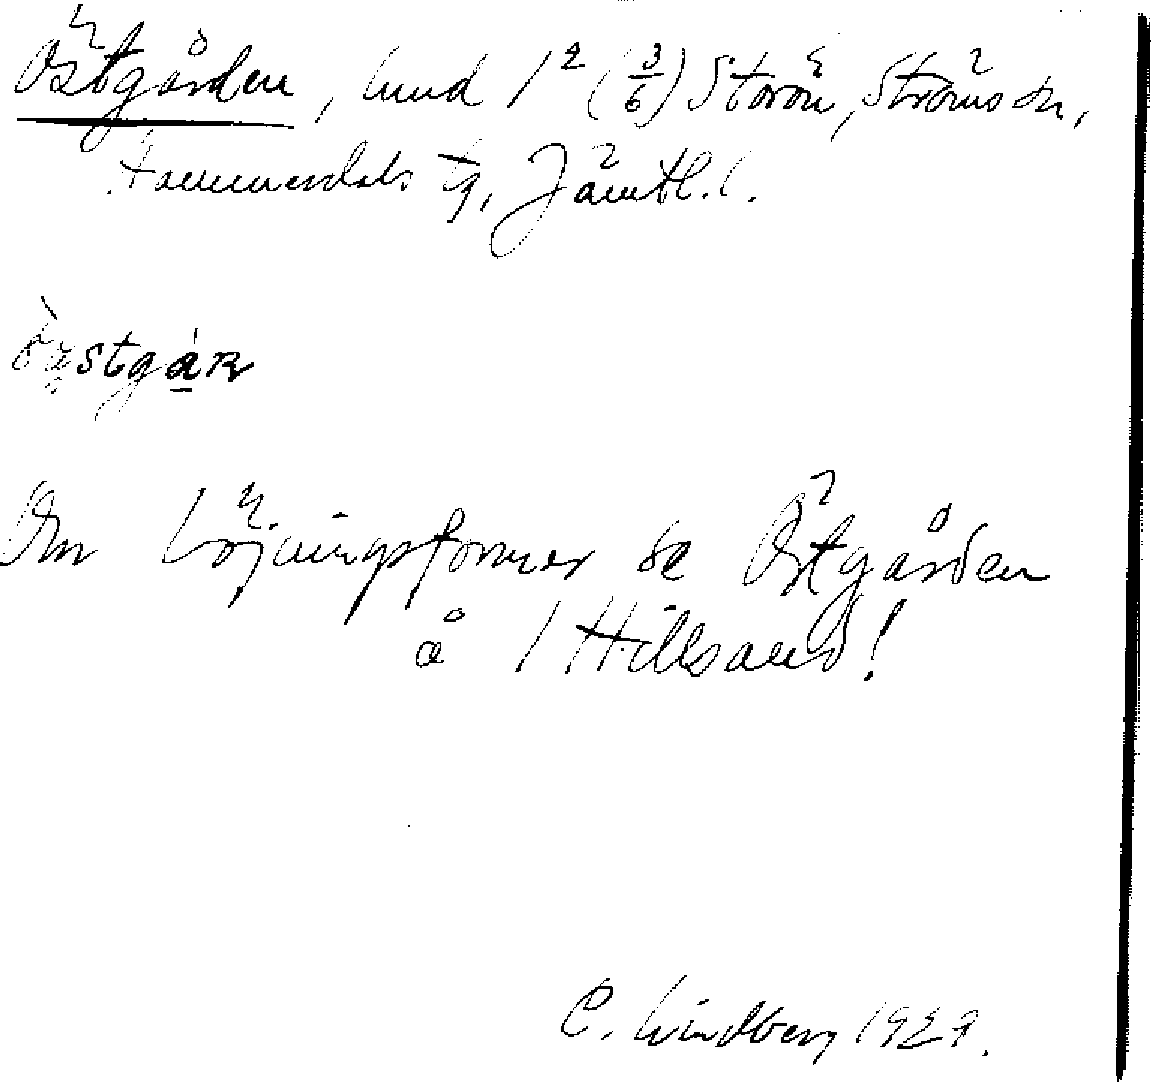 Östgården, hmd 1² (3/6) Storön, Ströms sn,
Hammerdals tg, Jämtl. l.
Om böjningsformer se Östgården
å 1 Hillsand!
C. Lindberg 1929.